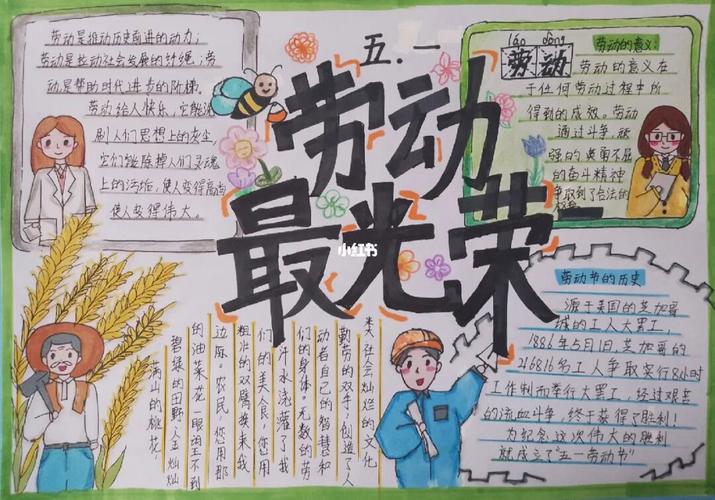 五.一
劳动
最光荣
劳动是推动历史前进的动力;
劳动是拉动社会发展的纤绳;劳
动是帮助时代进步的阶梯。
劳动给人快乐,它能洗
刷人们思想上的灰尘
它们能除掉人们灵魂
上的污垢,使人变得高尚
使人变得伟大。
láo dòng
劳动
劳动的意义:
劳动的意义在
于任何劳动过程中所
得到的成效。劳动
通过斗争,顽
强的英勇不屈
的奋斗精神
争取到了合法的
小红书
满山的桃花,
碧绿的田野金灿灿
的油菜花一眼望不到
边际。农民,您用那
粗壮的双臂换来我
们的美食,您用
汗水浇灌了我
们的身体。无数的劳
动者自己的智慧和
勤劳的双手,创造了人
类社会灿烂的文化
劳动节的历史
源于美国的芝加哥
城的工人大罢工,
1886年5月1日,芝加哥的
216816名工人争取实行8小时
工作制而举行大罢工,经过艰苦
的流血斗争,终于获得了胜利!
为纪念这次伟大的胜利
就成立了"五一劳动节"